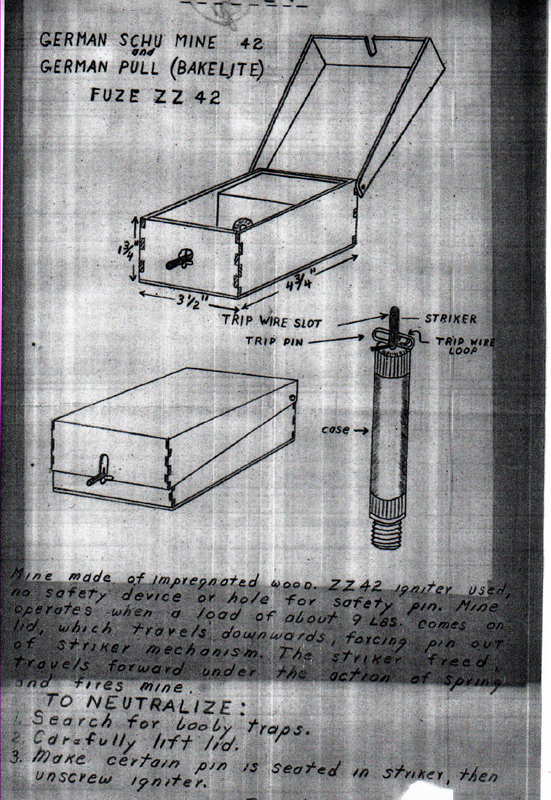 GERMAN SCHU MINE 42
and
GERMAN PULL (BAKELITE)
FUZE ZZ 42
1 3/4"
3 1/2"
4 3/4"
TRIP WIRE SLOT
STRIKER
TRIP PIN
TRIP WIRE
LOOP
case
Mine made of impregnated wood. ZZ42 igniter used,
no safety device or hole for safety pin. Mine
operates when a load of about 9 LBS. comes on
lid, which travels downwards, forcing pin out
of striker mechanism. The striker freed,
travels forward under the action of spring
and fires mine.
TO NEUTRALIZE:
1. Search for booby traps.
2. Carefully lift lid.
3. Make certain pin is seated in striker, then
unscrew igniter.